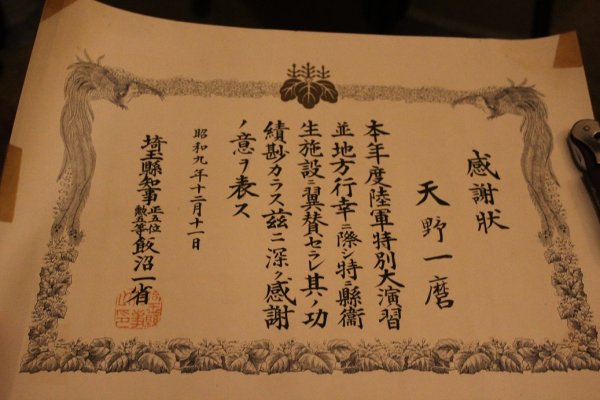 感謝狀
天野一麿
本年度陸軍特別大演習
並地方行幸ニ際シ特ニ縣衞
生施設ニ翼賛セラレ其ノ功
績尠カラス茲ニ深ク感謝
ノ意ヲ表ス
昭和九年十二月十一日
埼玉縣知事正五位勲五等飯沼一省